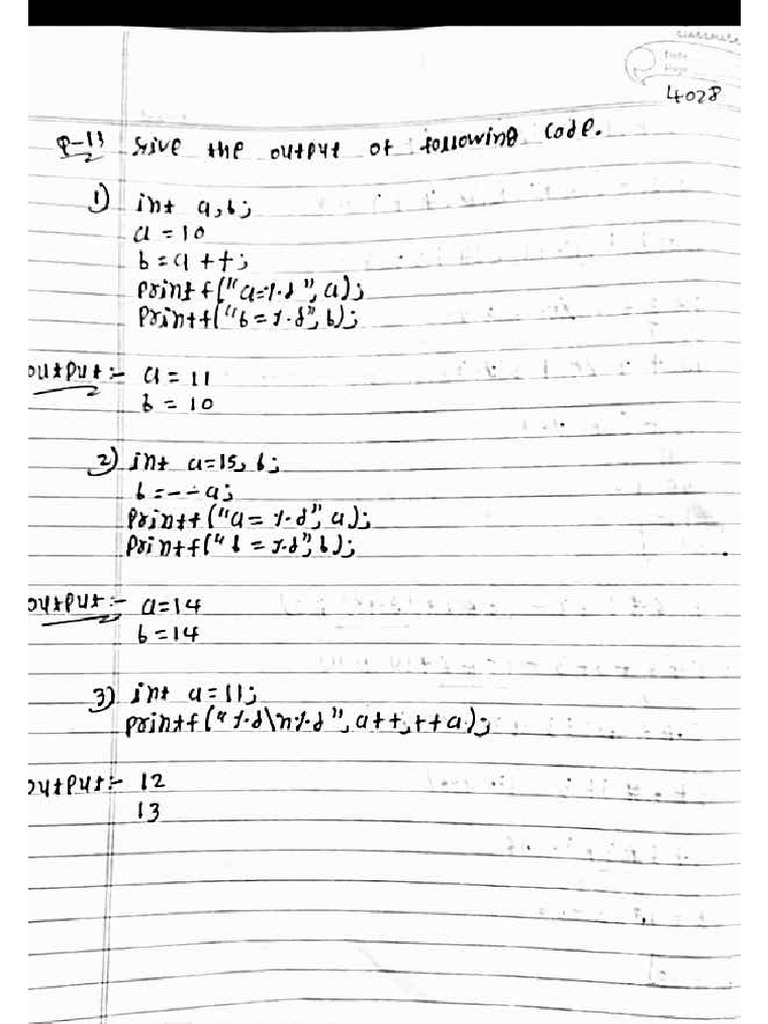 classmate
Date
Page
4028
P-13 Solve the output of following code.
1) int a,b;
a = 10
b = a ++;
printf("a=%d", a);
printf("b = %d", b);
output:- a = 11
b = 10
2) int a=15, b;
b = --a;
printf("a = %d", a);
printf("b = %d", b);
output:- a=14
b = 14
3) int a = 11;
printf("%d\n%d", a++, ++a);
output:- 12
13